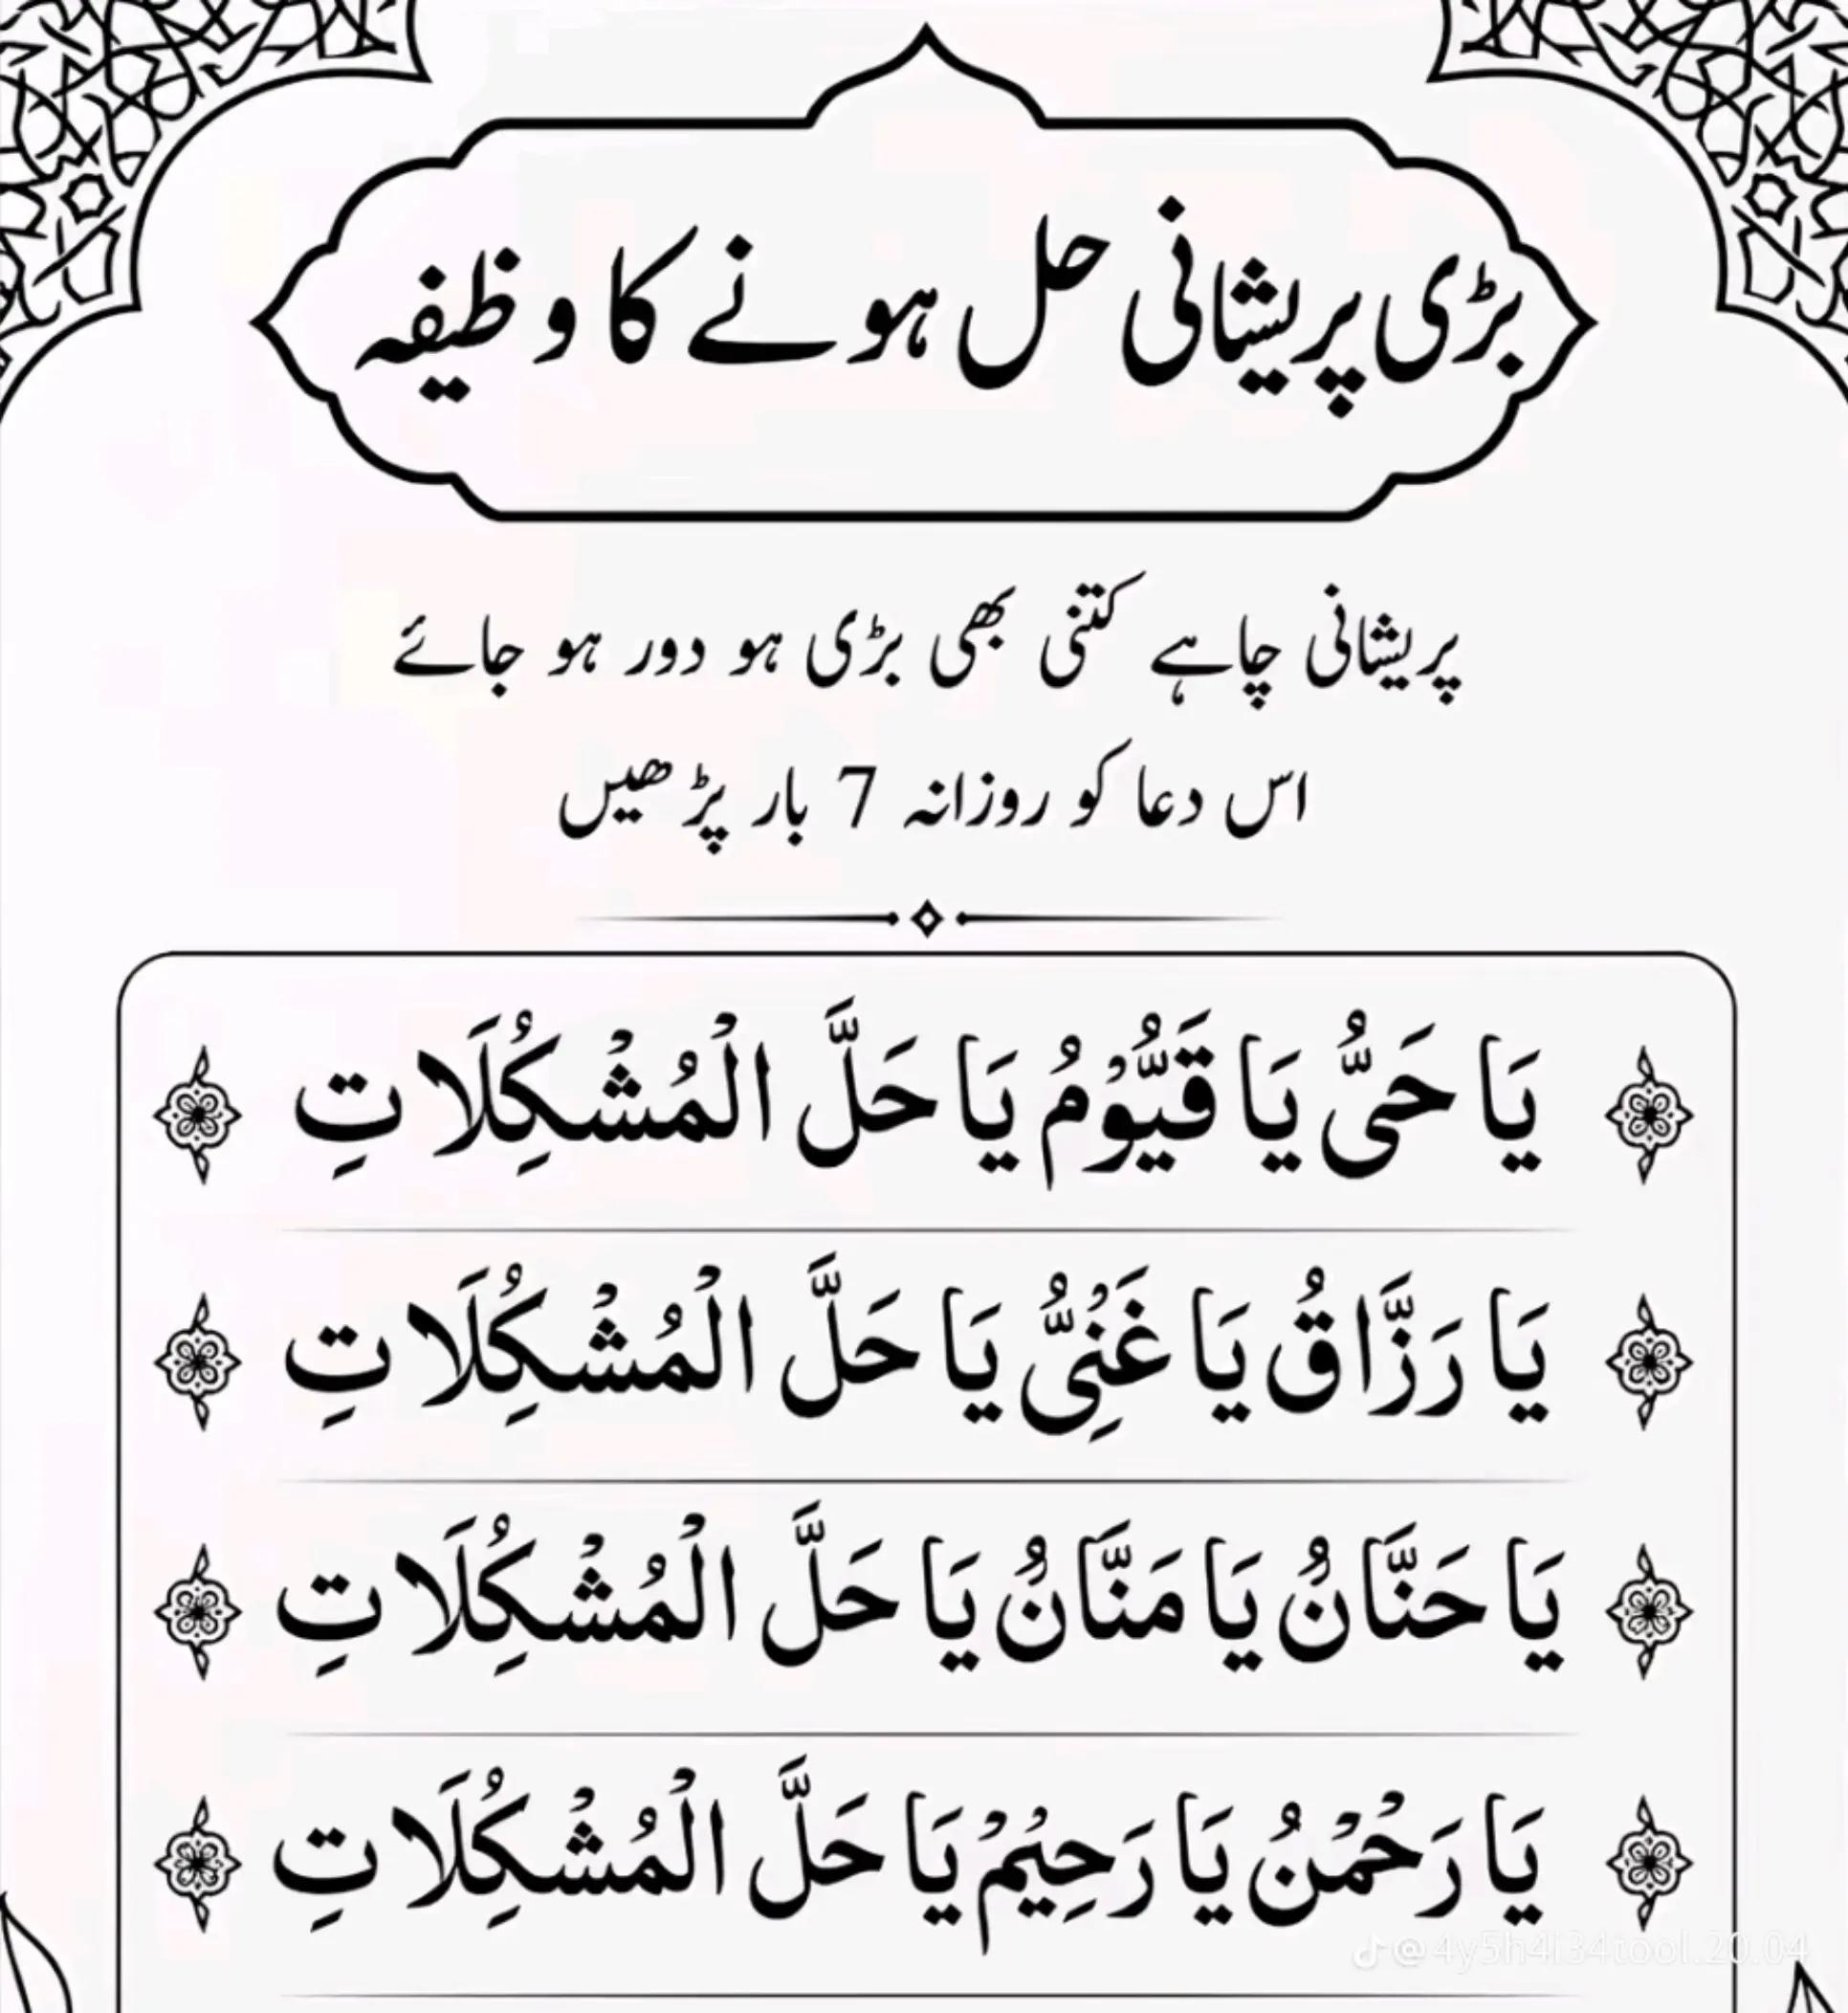 بڑی پریشانی حل ہونے کا وظیفہ
پریشانی چاہے کتنی بھی بڑی ہو دور ہو جائے
اس دعا کو روزانہ 7 بار پڑھیں
يَا حَىُّ يَا قَيُّوْمُ يَا حَلَّ الْمُشْكِلَاتِ
يَا رَزَّاقُ يَا غَنِىُّ يَا حَلَّ الْمُشْكِلَاتِ
يَا حَنَّانُ يَا مَنَّانُ يَا حَلَّ الْمُشْكِلَاتِ
يَا رَحْمٰنُ يَا رَحِيْمُ يَا حَلَّ الْمُشْكِلَاتِ
@4y5h4l34tool.20.04